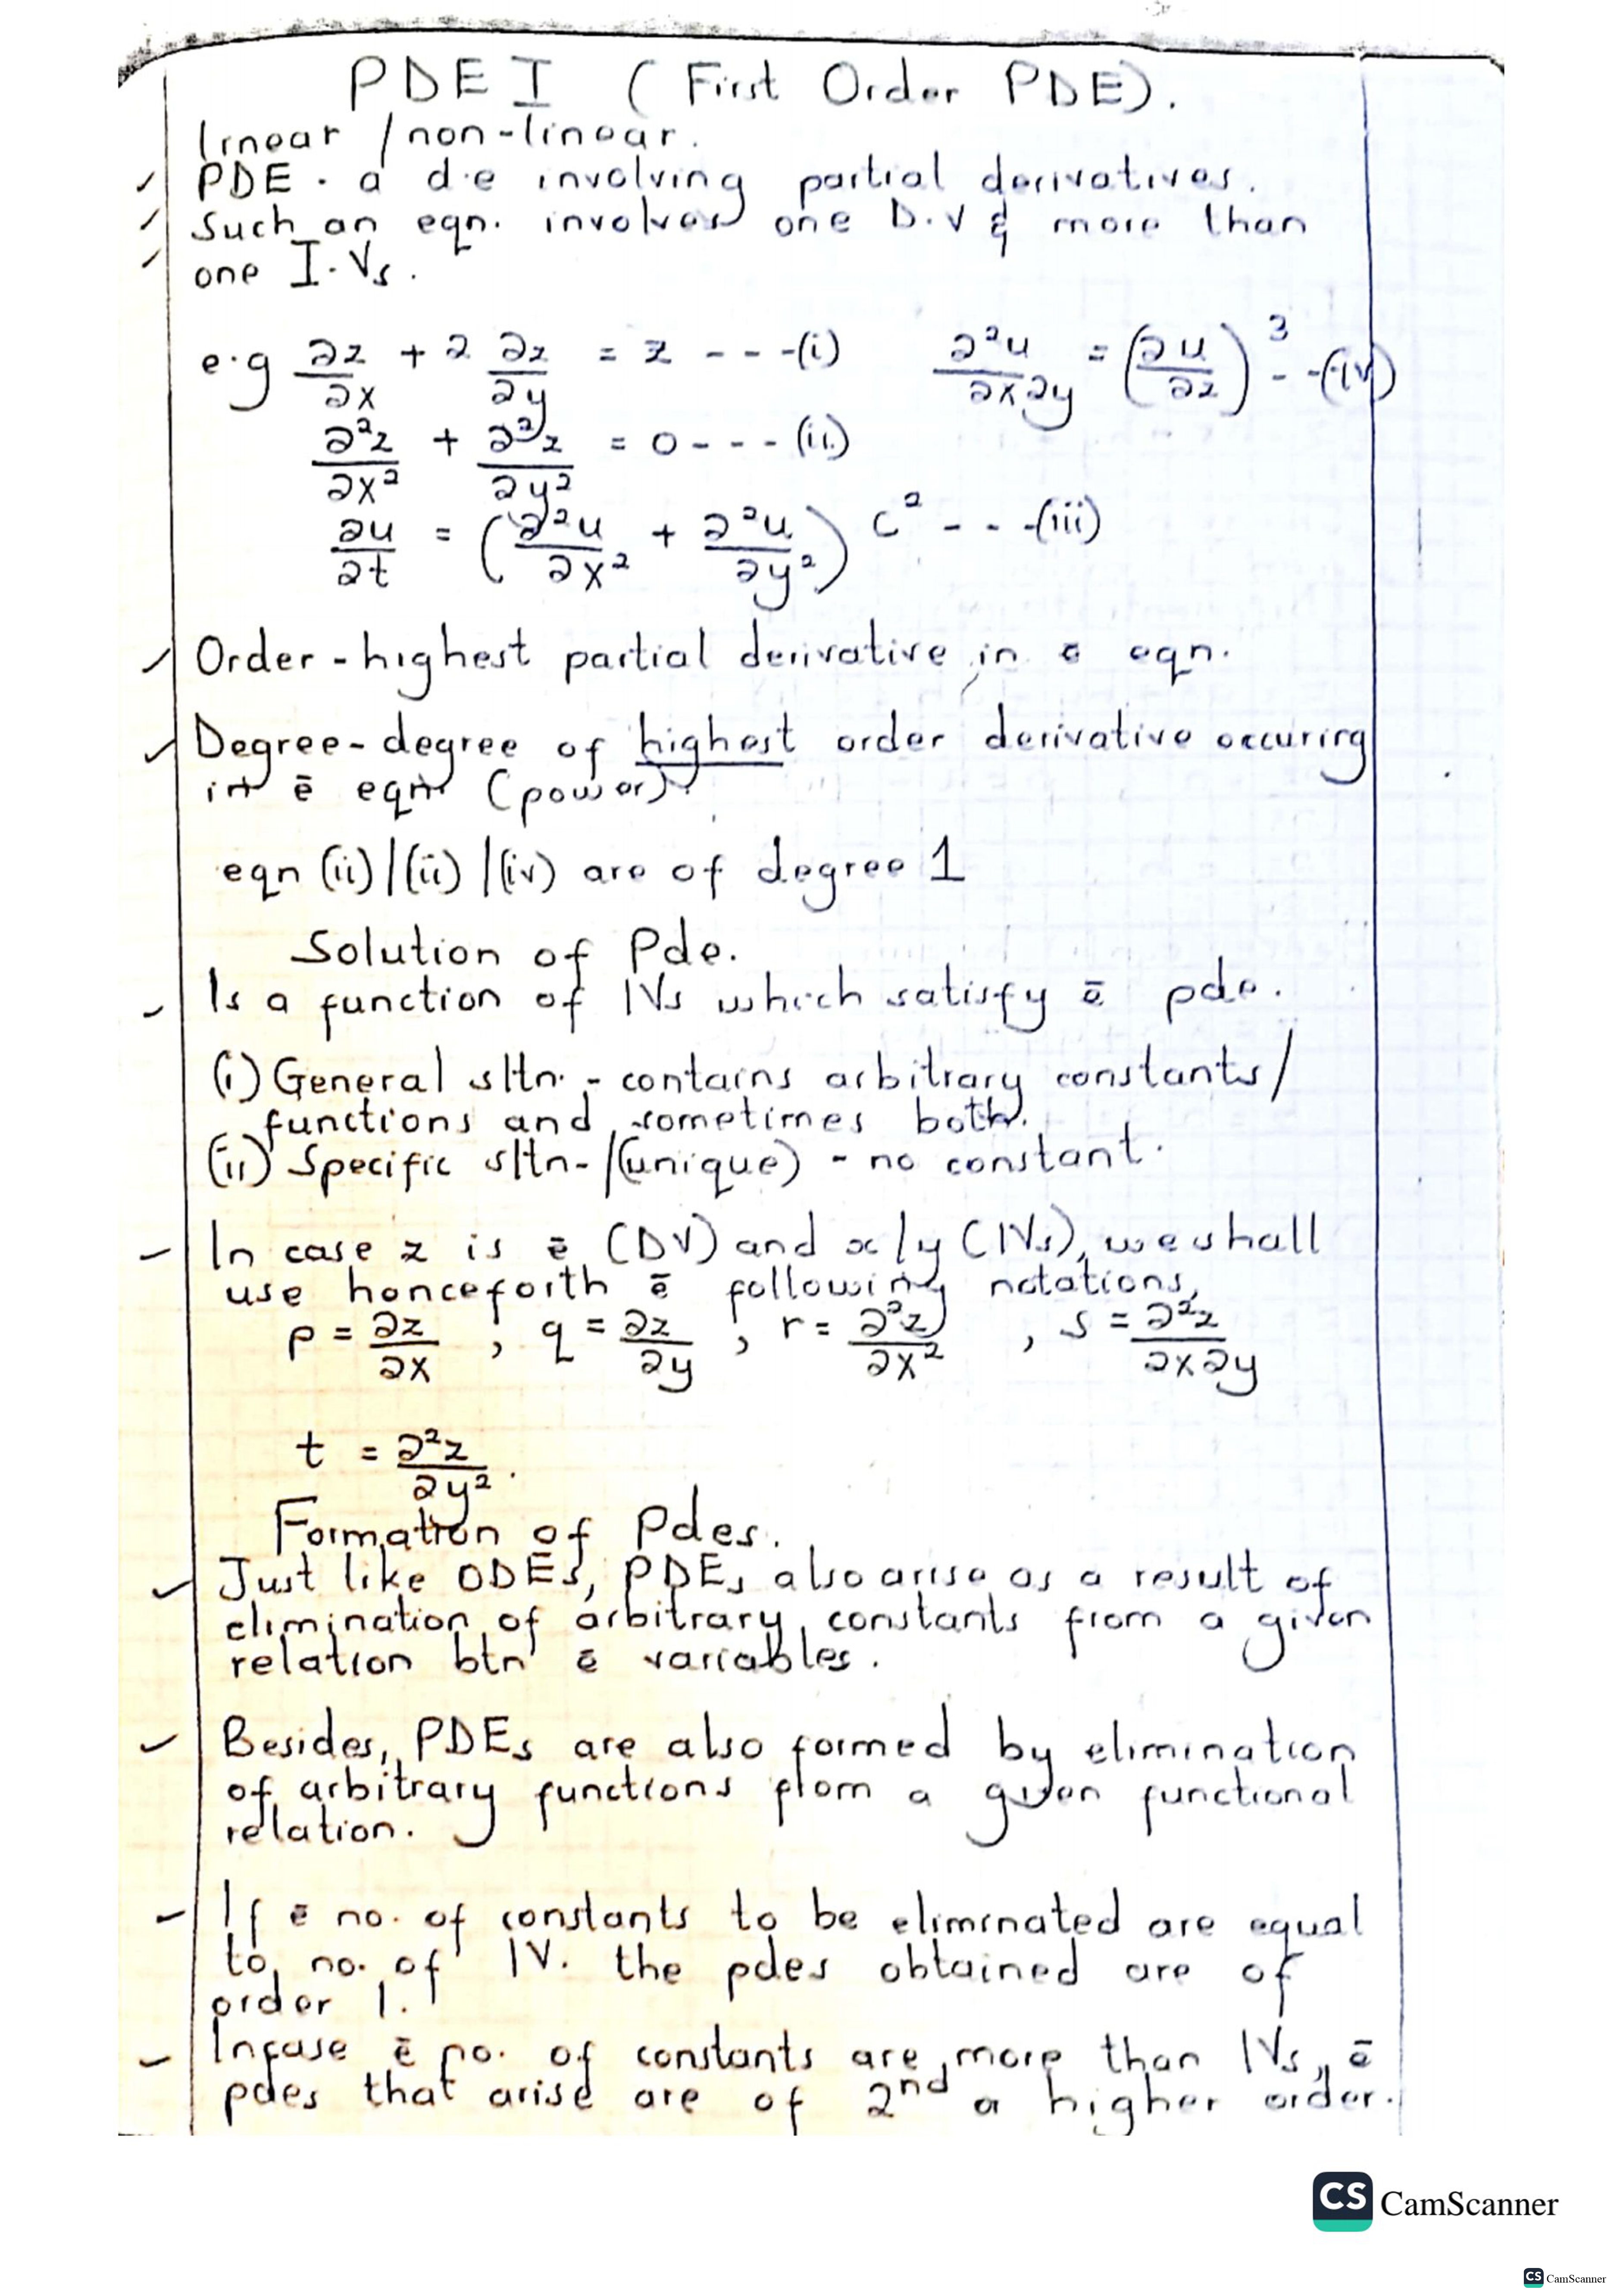 PDE I (First Order PDE).
linear / non-linear.
PDE - a d.e involving partial derivatives.
Such an eqn. involves one D.V & more than
one I.Vs.
e.g ∂z/∂x + 2 ∂z/∂y = z - - - (i)    ∂²u/∂x∂y = (∂u/∂z)³ - - (iv)
∂²z/∂x² + ∂²z/∂y² = 0 - - - (ii)
∂u/∂t = (∂²u/∂x² + ∂²u/∂y²) c² - - - (iii)
Order - highest partial derivative in ē eqn.
Degree - degree of highest order derivative occuring
in ē eqn (power).
eqn (ii) / (ii) / (iv) are of degree 1
Solution of Pde.
Is a function of IVs which satisfy ē pde.
(i) General sltn. - contains arbitrary constants/
functions and sometimes both.
(ii) Specific sltn- /(unique) - no constant.
In case z is ē (DV) and x/y (IVs), we shall
use henceforth ē following notations,
p = ∂z/∂x , q = ∂z/∂y , r = ∂²z/∂x² , s = ∂²z/∂x∂y
t = ∂²z/∂y².
Formation of Pdes.
Just like ODEs, PDEs also arise as a result of
elimination of arbitrary constants from a given
relation btn ē variables.
Besides, PDEs are also formed by elimination
of arbitrary functions from a given functional
relation.
If ē no. of constants to be eliminated are equal
to no. of IV. the pdes obtained are of
order 1.
Incase ē no. of constants are more than IVs, ē
pdes that arise are of 2nd a higher order.
CS CamScanner
CS CamScanner